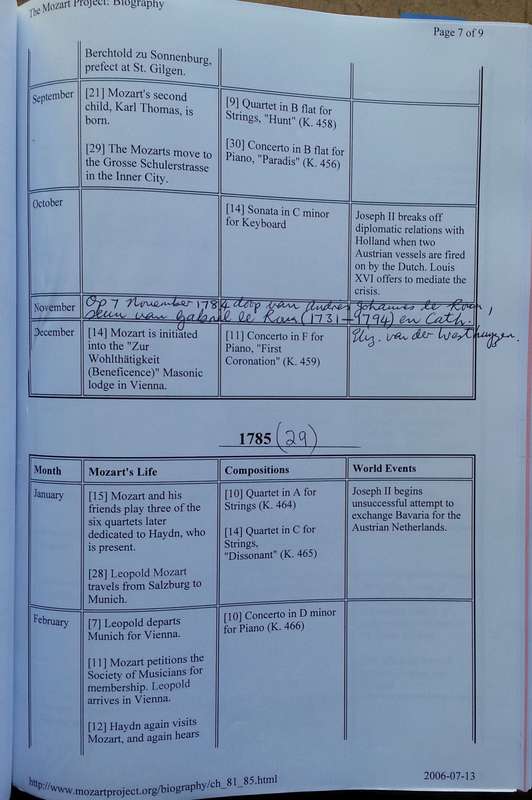 The Mozart Project: Biography
Page 7 of 9
Berchtold zu Sonnenburg,
prefect at St. Gilgen.
September
[21] Mozart's second
child, Karl Thomas, is
born.
[29] The Mozarts move to
the Grosse Schulerstrasse
in the Inner City.
[9] Quartet in B flat for
Strings, "Hunt" (K. 458)
[30] Concerto in B flat for
Piano, "Paradis" (K. 456)
October
[14] Sonata in C minor
for Keyboard
Joseph II breaks off
diplomatic relations with
Holland when two
Austrian vessels are fired
on by the Dutch. Louis
XVI offers to mediate the
crisis.
November
Op 7 November 1784 doop van Andries Johannes le Roux,
seun van Gabriel le Roux (1731–1794) en Cath.
Eliz. van der Westhuyzen.
December
[14] Mozart is initiated
into the "Zur
Wohlthätigkeit
(Beneficence)" Masonic
lodge in Vienna.
[11] Concerto in F for
Piano, "First
Coronation" (K. 459)
1785 (29)
Month
Mozart's Life
Compositions
World Events
January
[15] Mozart and his
friends play three of the
six quartets later
dedicated to Haydn, who
is present.
[28] Leopold Mozart
travels from Salzburg to
Munich.
[10] Quartet in A for
Strings (K. 464)
[14] Quartet in C for
Strings,
"Dissonant" (K. 465)
Joseph II begins
unsuccessful attempt to
exchange Bavaria for the
Austrian Netherlands.
February
[7] Leopold departs
Munich for Vienna.
[11] Mozart petitions the
Society of Musicians for
membership. Leopold
arrives in Vienna.
[12] Haydn again visits
Mozart, and again hears
[10] Concerto in D minor
for Piano (K. 466)
http://www.mozartproject.org/biography/ch_81_85.html
2006-07-13